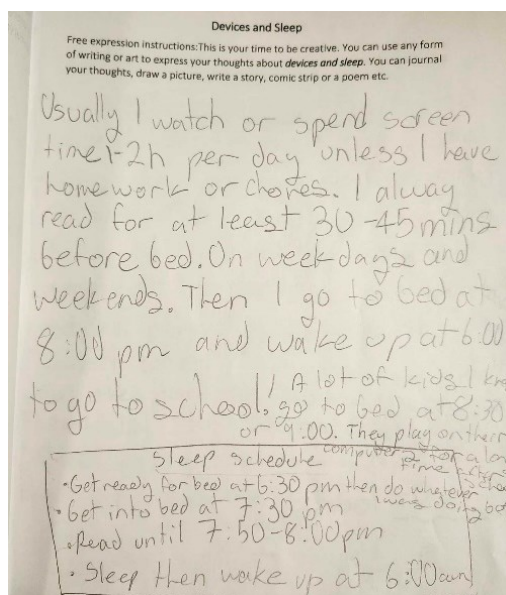 Devices and Sleep
Free expression instructions:This is your time to be creative. You can use any form
of writing or art to express your thoughts about devices and sleep. You can journal
your thoughts, draw a picture, write a story, comic strip or a poem etc.
Usually I watch or spend screen
time 1-2h per day unless I have
homework or chores. I alway
read for at least 30-45mins
before bed. On weekdays and
weekends. Then I go to bed at
8:00 pm and wake up at 6:00
to go to school!
A lot of kids I
go to bed at 8:30
or 9:00. They play on their
computer for a
time after
Sleep schedule
• Get ready for bed at 6:30 pm then do whatever
I was doing
• Get into bed at 7:30 pm
• Read until 7:50-8:00pm
• Sleep then wake up at 6:00am